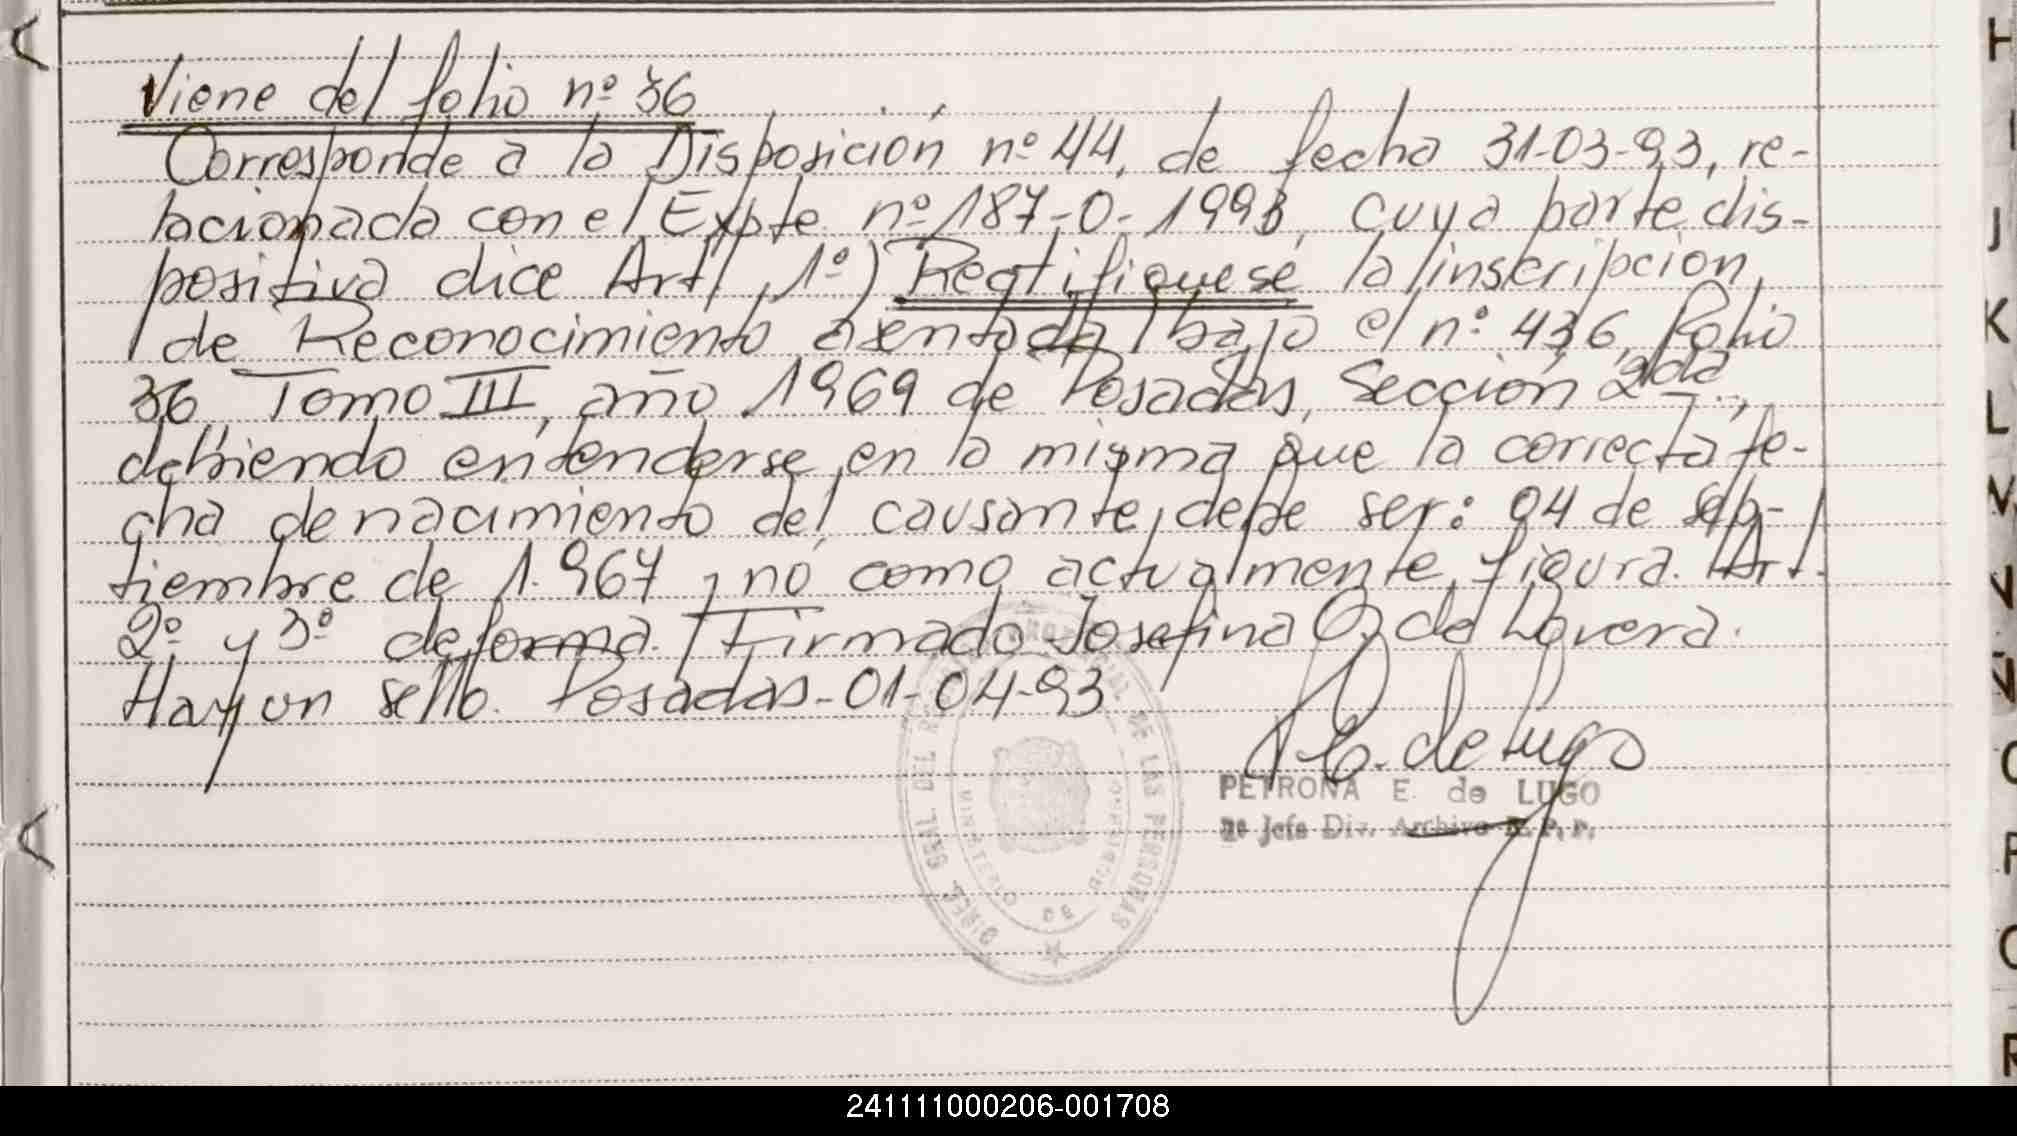 Viene del folio nº 36
Corresponde a la Disposición nº 44, de fecha 31-03-93, re-
lacionada con el Expte nº 187-O-1993, cuya parte dis-
positiva dice Art. 1º) Rectifiquese la inscripción
de Reconocimiento asentada bajo el nº 436, Folio
36 Tomo III, año 1969 de Posadas, Sección 2da.,
debiendo entenderse en la misma que la correcta fe-
cha de nacimiento del causante, debe ser: 04 de sep-
tiembre de 1.967 y no como actualmente figura. Art.
2º y 3º de forma. Firmado Josefina O. de Lovera.
Hay un sello. Posadas-01-04-93
P. E. de Lugo
PETRONA E. de LUGO
2º Jefe Div. Archivo R. P. P.
DIREC. GRAL. DEL REGISTRO PROVINCIAL DE LAS PERSONAS
MINISTERIO DE GOBIERNO
H
I
J
K
L
M
N
Ñ
O
P
Q
R
241111000206-001708